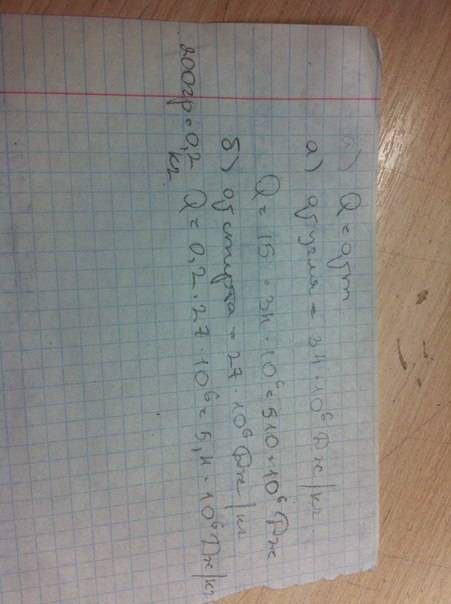 Q = qm
а) q угля = 34 · 10⁶ Дж/кг
Q = 15 · 34 · 10⁶ = 510 · 10⁶ Дж
б) q спирта = 27 10⁶ Дж/кг
200гр = 0,2 кг Q = 0,2 · 27 · 10⁶ = 5,4 · 10⁶ Дж/кг